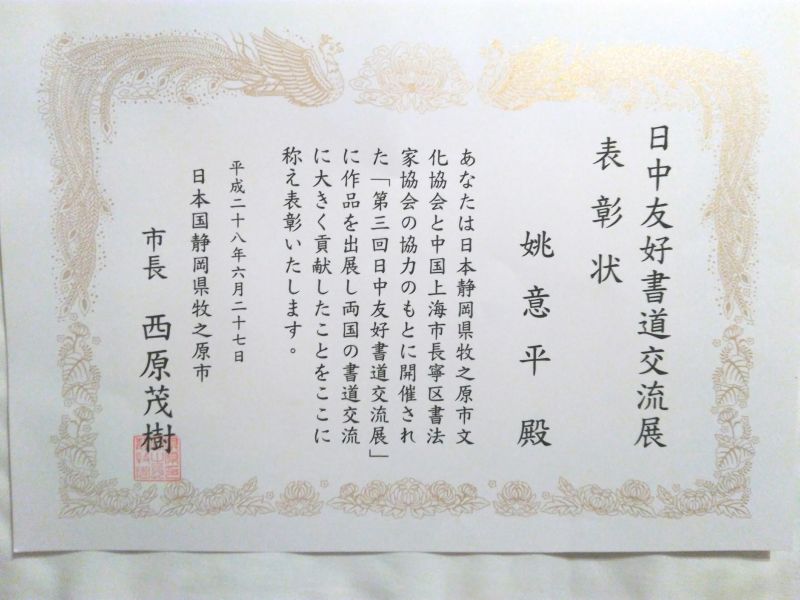 日中友好書道交流展
表彰状
姚意平殿
あなたは日本静岡県牧之原市文
化協会と中国上海市長寧区書法
家協会の協力のもとに開催され
た「第三回日中友好書道交流展」
に作品を出展し両国の書道交流
に大きく貢献したことをここに
称え表彰いたします。
平成二十八年六月二十七日
日本国静岡県牧之原市
市長 西原茂樹